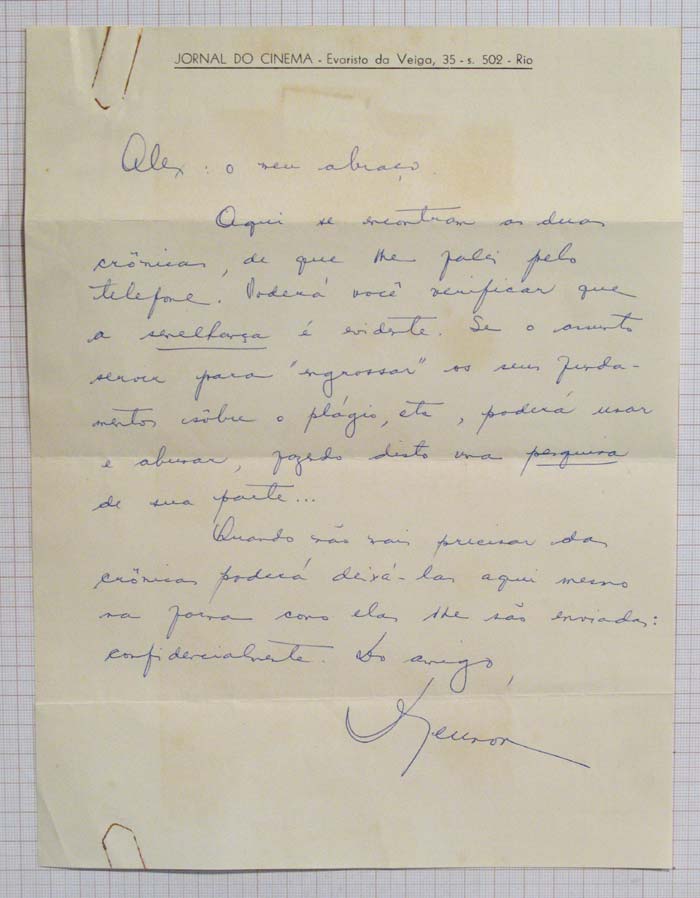 JORNAL DO CINEMA - Evaristo da Veiga, 35 - s. 502 - Rio
Alex: o meu abraço.
Aqui se encontram as duas
crônicas, de que lhe falei pelo
telefone. Poderá você verificar que
a semelhança é evidente. Se o assunto
servir para "engrossar" os seus funda-
mentos sôbre o plágio, etc, poderá usar
e abusar, fazendo disto uma pesquisa
de sua parte...
Quando não mais precisar das
crônicas poderá deixá-las aqui mesmo
na forma como elas lhe são enviadas:
confidencialmente. Do amigo,